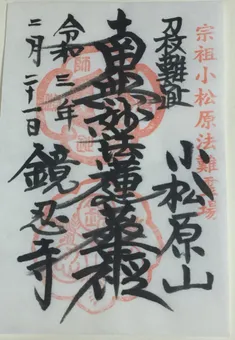 宗祖小松原法難霊場
刀杖難趾
小松原山
南無妙法蓮華經
令和三年
二月二十一日
鏡忍寺